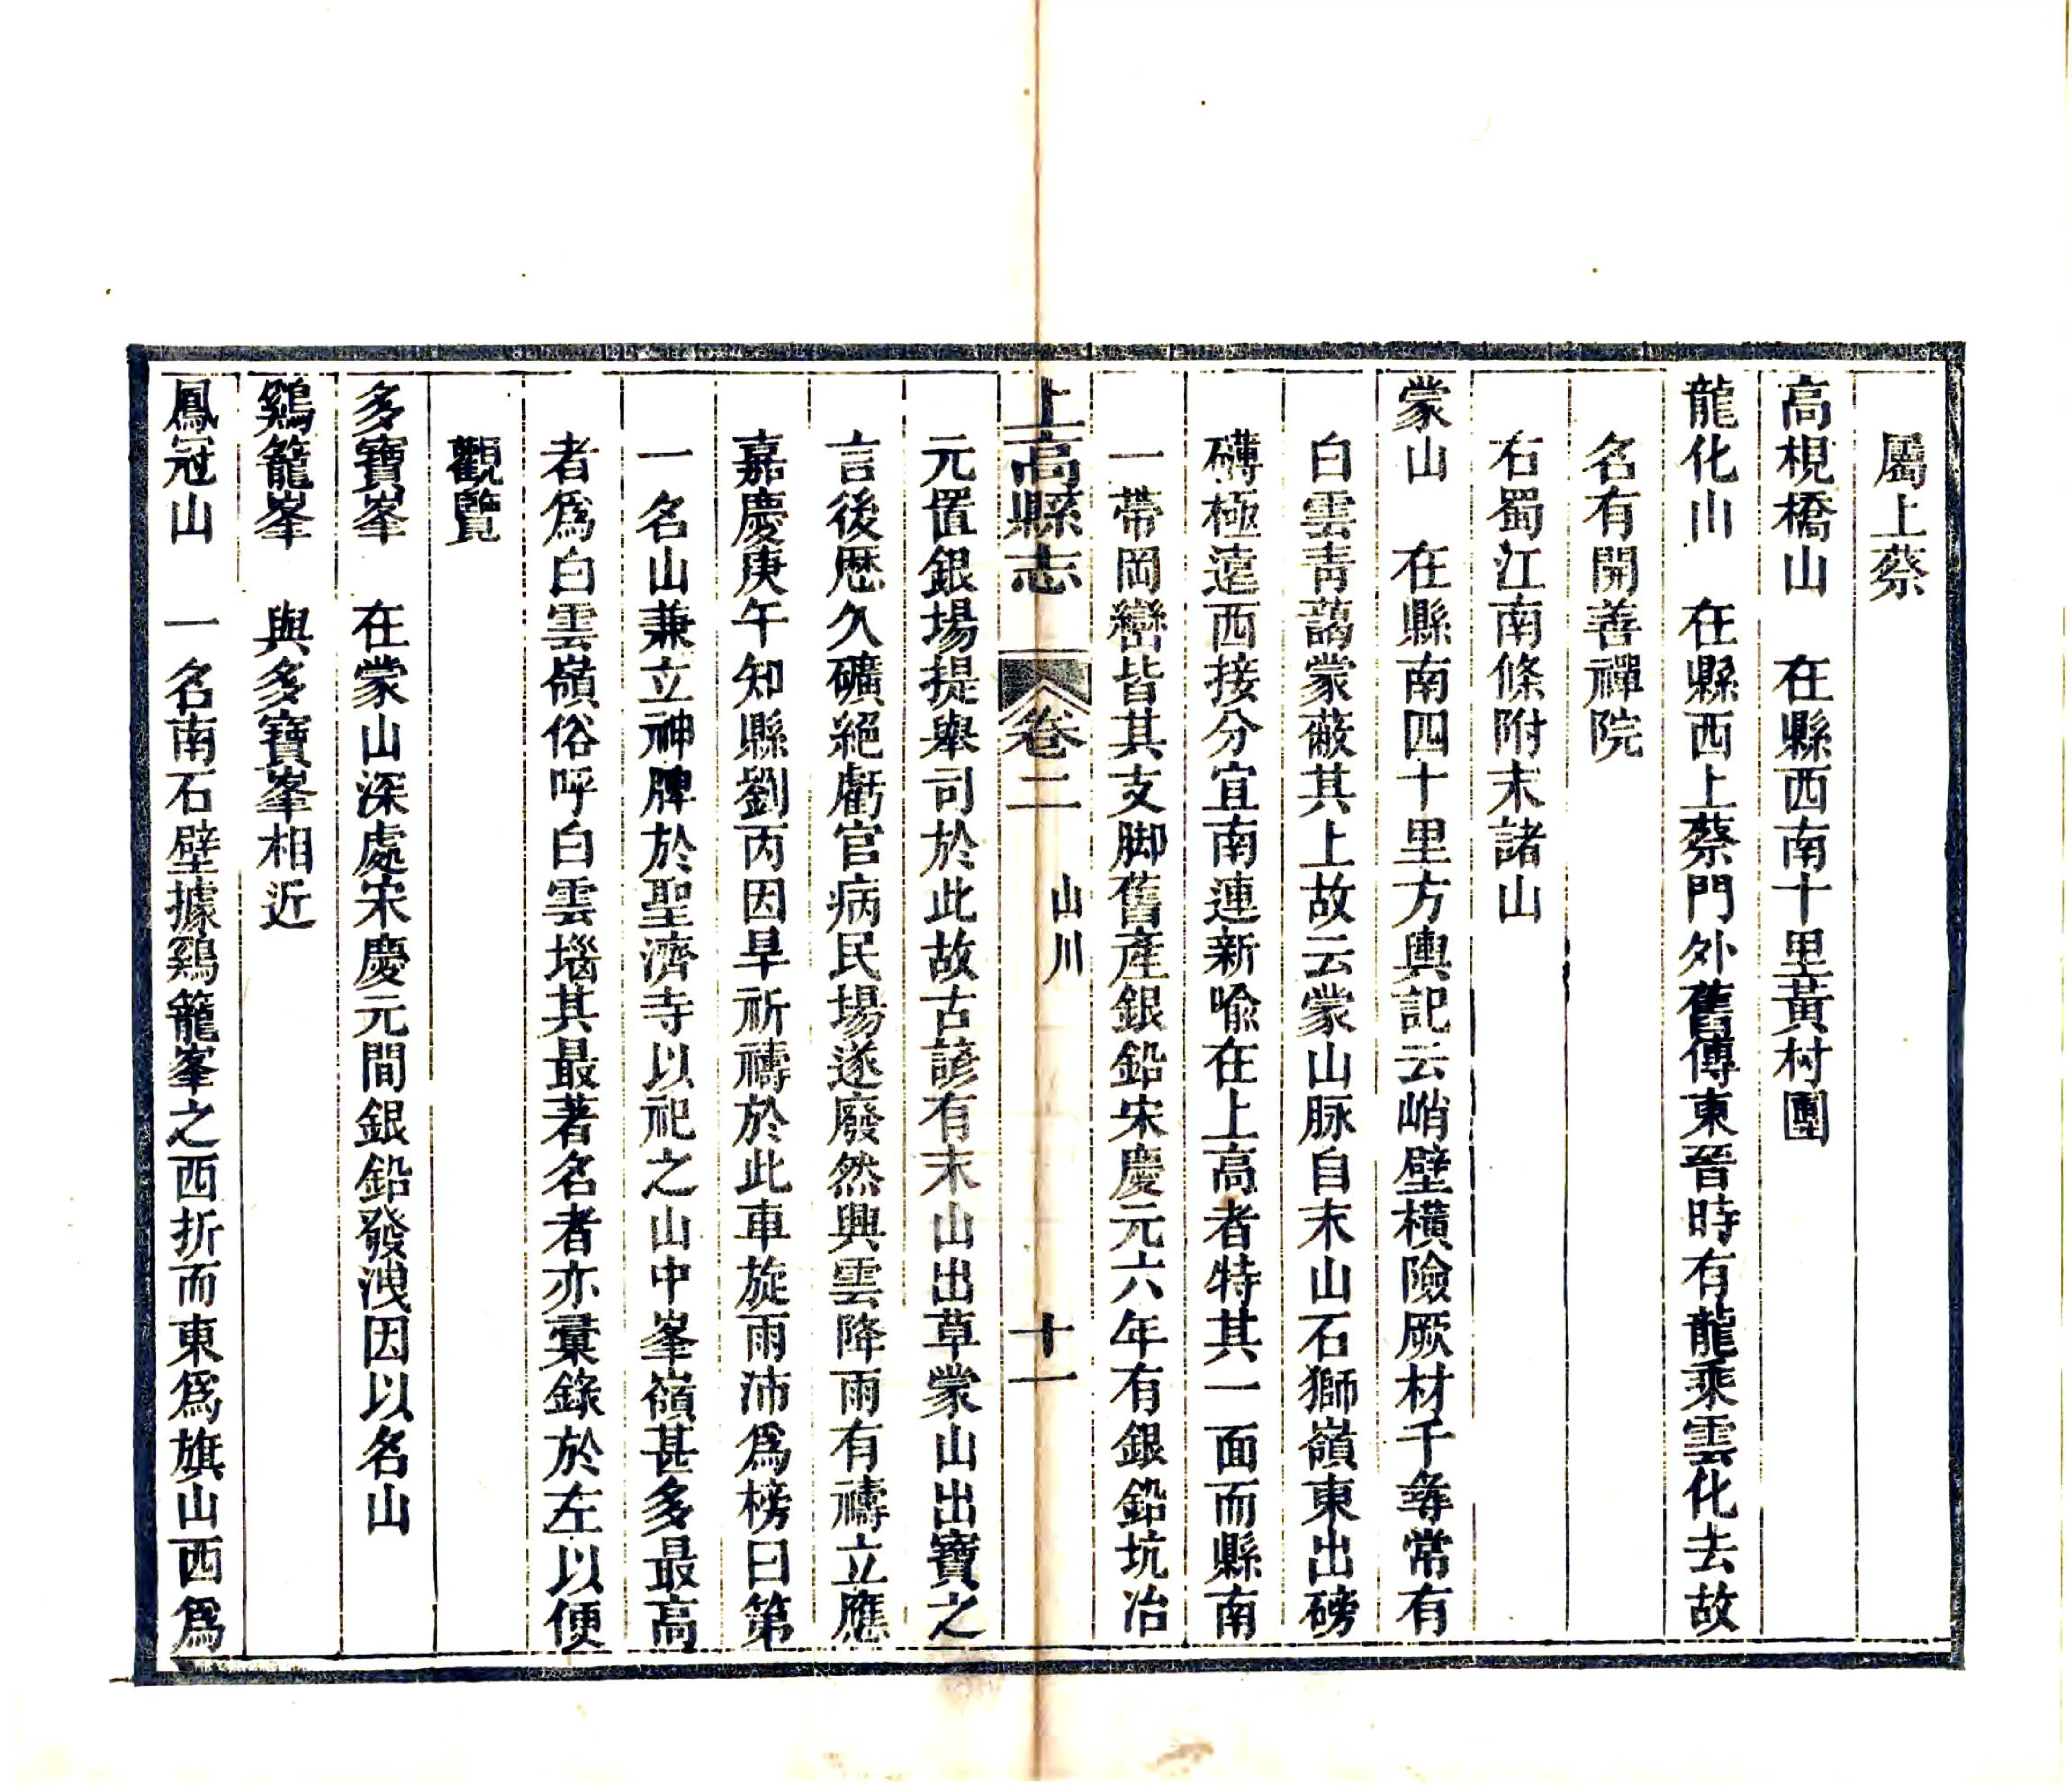 屬上蔡
高梘橋山　在縣西南十里黃村團
龍化山　在縣西上蔡門外舊傳東晉時有龍乘雲化去故
名有開善禪院
右蜀江南條附末諸山
蒙山　在縣南四十里方輿記云峭壁橫險厥材千尋常有
白雲靑藹蒙蔽其上故云蒙山脉自末山石獅嶺東出磅
礴極遠西接分宜南連新喻在上高者特其一面而縣南
一帶岡巒皆其支脚舊產銀鉛宋慶元六年有銀鉛坑冶
上高縣志　卷二　山川　十一
元置銀場提舉司於此故古諺有末山出草蒙山出寶之
言後歷久礦絕虧官病民場遂廢然興雲降雨有禱立應
嘉慶庚午知縣劉丙因旱祈禱於此車旋雨沛爲榜曰第
一名山兼立神牌於聖濟寺以祀之山中峯嶺甚多最高
者爲白雲嶺俗呼白雲堖其最著名者亦彙錄於左以便
觀覽
多寶峯　在蒙山深處宋慶元間銀鉛發洩因以名山
鷄籠峯　與多寶峯相近
鳳冠山　一名南石壁據鷄籠峯之西折而東爲旗山西爲